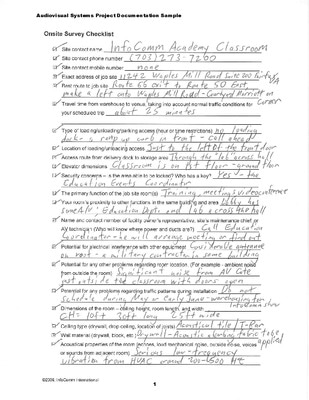 Audiovisual Systems Project Documentation Sample
Onsite Survey Checklist
Site contact name InfoComm Academy Classroom
Site contact phone number (703) 273-7200
Site contact mobile number none
Exact address of job site 11242 Waples Mill Road Suite 200 Fairfax, VA
Best route to job site Route 66 exit to Route 50 East,
make a left onto Waples Mill Road - Courtyard Marriott on corner
Travel time from warehouse to venue, taking into account normal traffic conditions for
your scheduled trip about 25 minutes
Type of loading/unloading/parking access (hour or time restrictions) no loading
dock; a ramp up curb in front - call ahead!
Location of loading/unloading access Just to the left of the front door
Access route from delivery dock to storage area Through the "lab" across hall
Elevator dimensions Classroom is on 1st floor - ground floor
Security concerns – is the area able to be locked? Who has a key? Yes - the
Education Events Coordinator
The primary function of the job site room(s) Training, meetings, videoconference
Your room's proximity to other functions in the same building and area Lobby has
some AV; Education Dept. and lab across the hall
Name and contact number of facility owner's representative, site's maintenance chief or
AV technician (Who will know where power and ducts are?) Call Education
Coordinator - he will arrange meeting or find out
Potential for electrical interference with other equipment Considerable antennae
on roof - a military contractor in same building
Potential for any other problems regarding room location. (For example - ambient noise
from outside the room) Significant noise from AV Cafe
just outside the classroom with doors open
Potential for any problems regarding traffic patterns during installation Do not
schedule during May or early June - warehousing for InfoComm show
Dimensions of the room - ceiling height, room length, and width
CH = 10ft 30ft long 25ft wide
Ceiling type (drywall, drop ceiling, location of joists) Acoustical tile / T-Bar
Wall material (drywall, block, etc) Drywall - Acoustic absorbing fabric to be applied
Acoustical properties of the room (echoes, loud mechanical noises, outside noise, voices
or sounds from adjacent rooms) Serious low-frequency
vibration from HVAC around 200-1500 Hz
©2009, InfoComm International
1